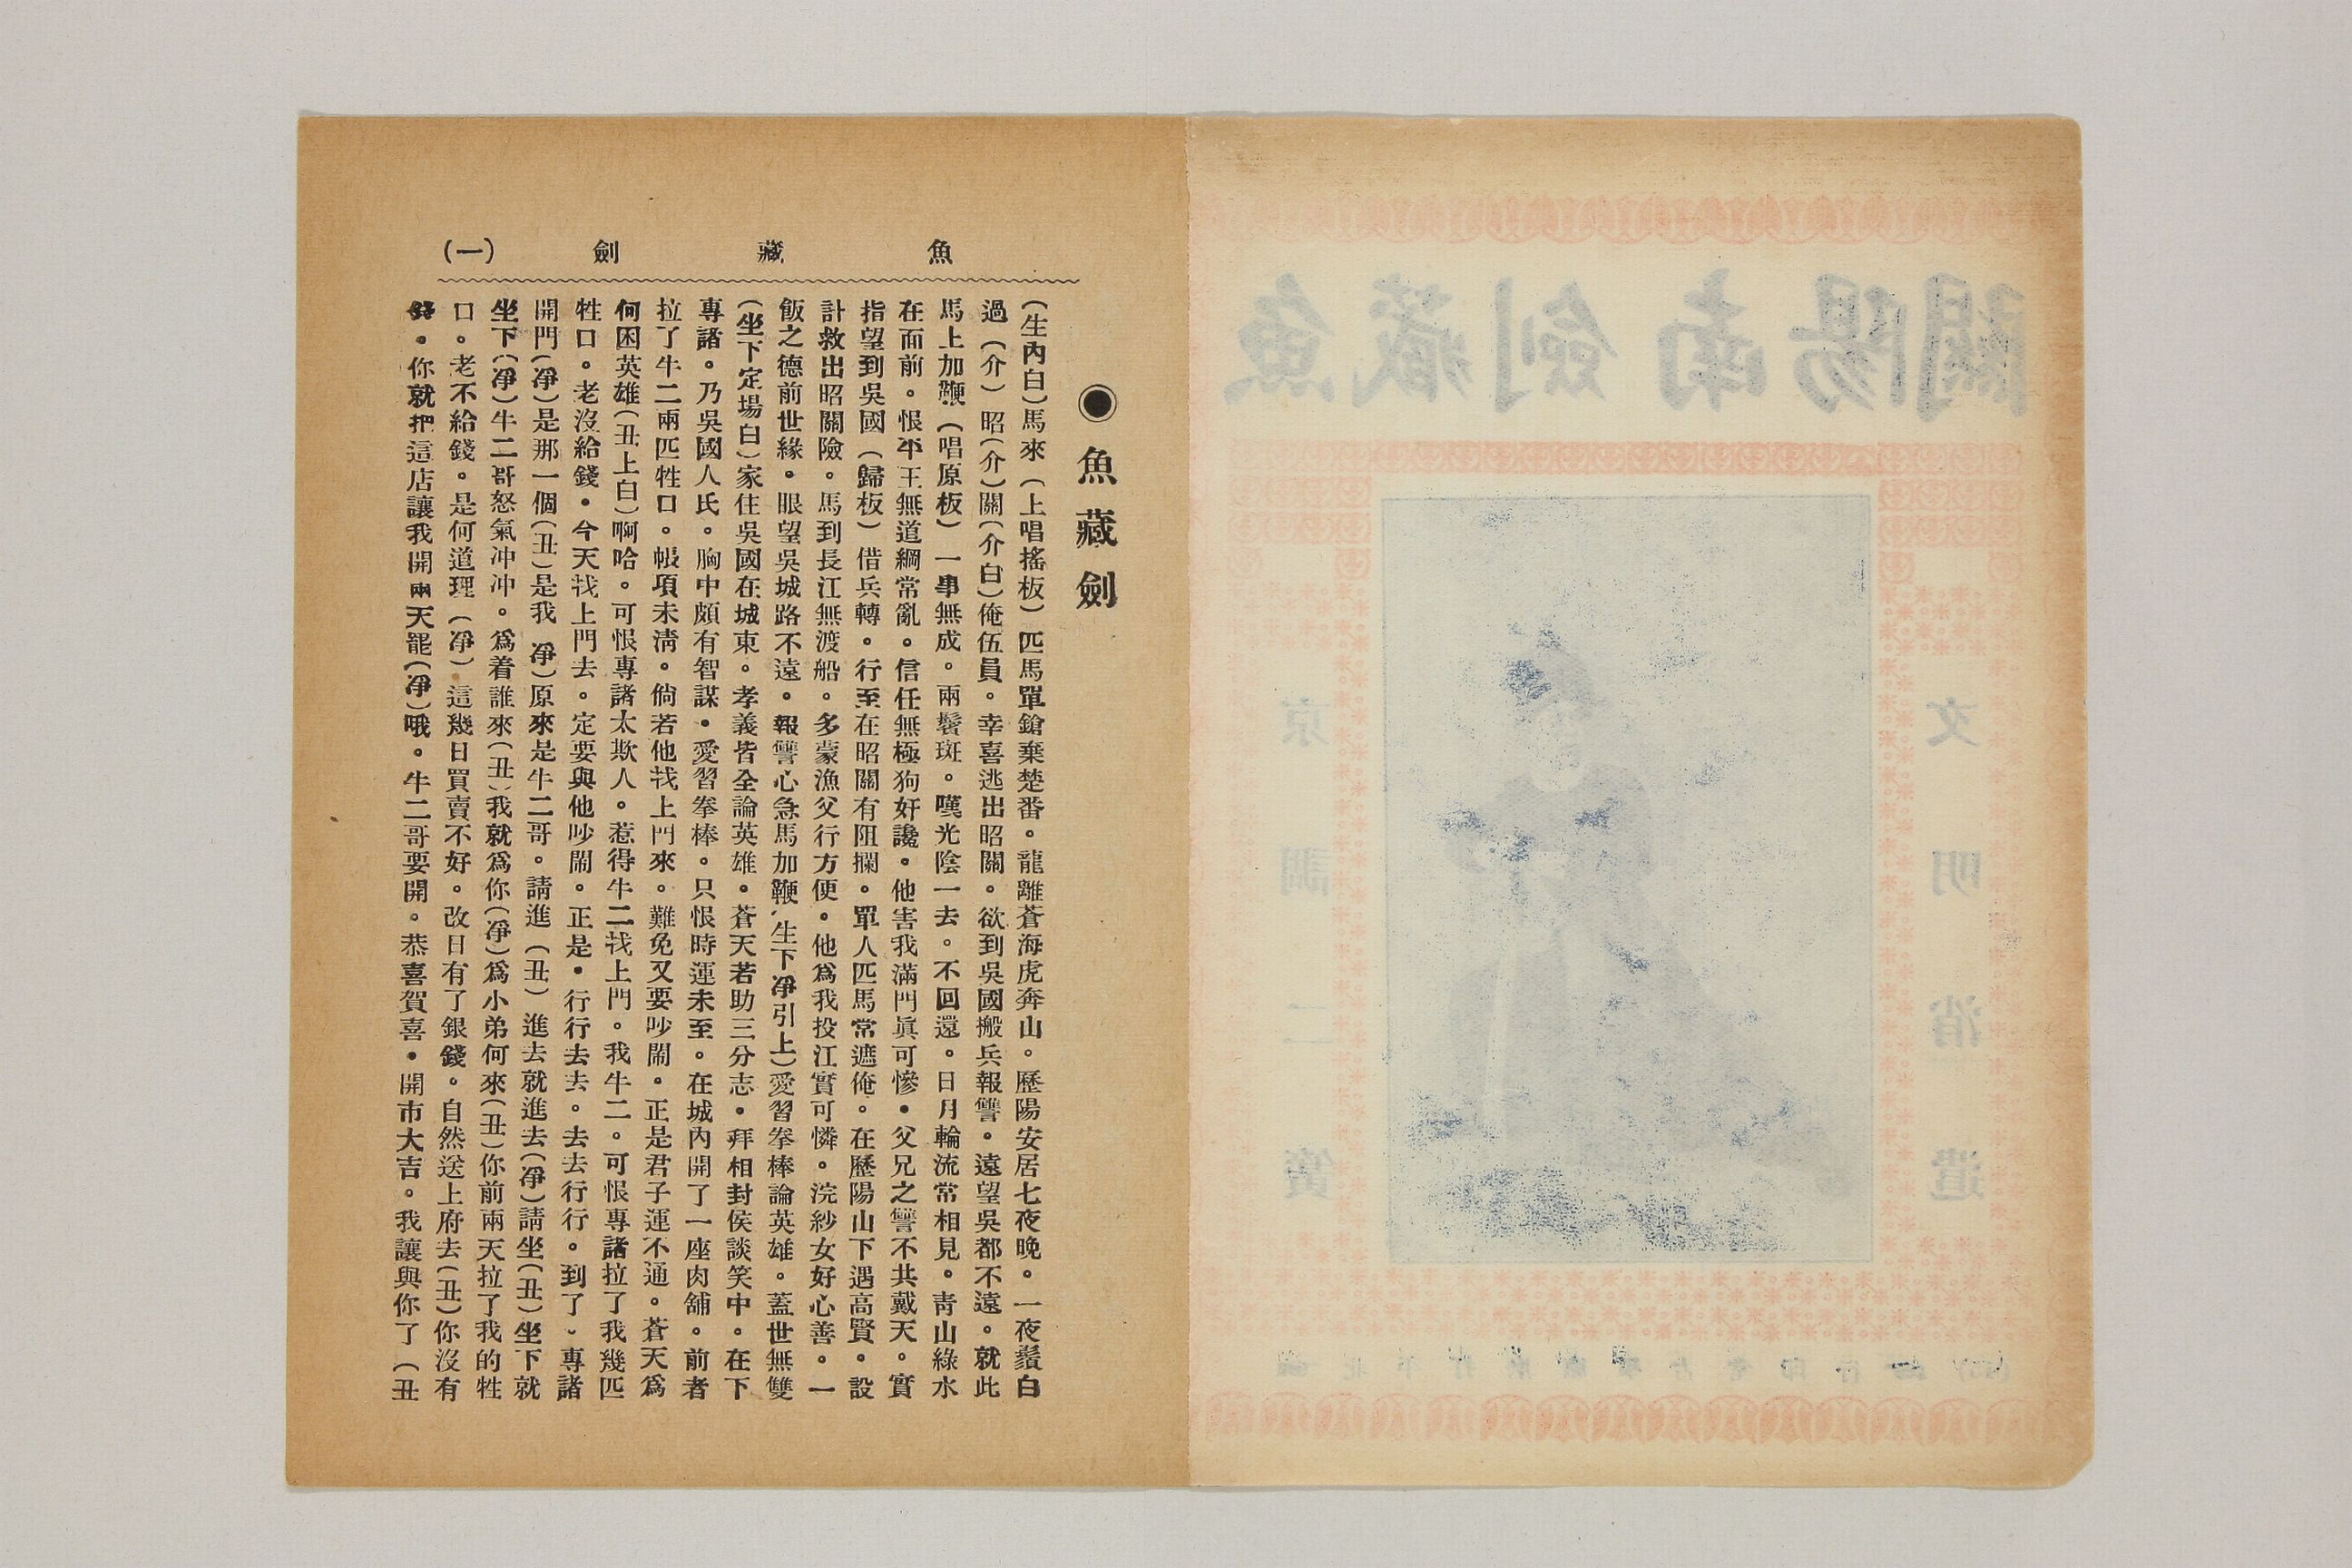 魚藏劍(一)
◉魚藏劍
(生內白)馬來(上唱搖板)匹馬單鎗棄楚番。龍離蒼海虎奔山。歷陽安居七夜晚。一夜鬚白
過(介)昭(介)關(介白)俺伍員。幸喜逃出昭關。欲到吳國搬兵報讐。遠望吳都不遠。就此
馬上加鞭(唱原板)一事無成。兩鬢斑。嘆光陰一去。不回還。日月輪流常相見。靑山綠水
在面前。恨平王無道綱常亂。信任無極狗奸讒。他害我滿門眞可慘。父兄之讐不共戴天。實
指望到吳國(歸板)借兵轉。行至在昭關有阻攔。單人匹馬常遮俺。在歷陽山下遇高賢。設
計救出昭關險。馬到長江無渡船。多蒙漁父行方便。他爲我投江實可憐。浣紗女好心善。一
飯之德前世緣。眼望吳城路不遠。報讐心急馬加鞭(生下凈引上)愛習拳棒論英雄。蓋世無雙
(坐下定場白)家住吳國在城東。孝義皆全論英雄。蒼天若助三分志。拜相封侯談笑中。在下
專諸。乃吳國人氏。胸中頗有智謀。愛習拳棒。只恨時運未至。在城內開了一座肉舖。前者
拉了牛二兩匹牲口。帳項未淸。倘若他找上門來。難免又要吵鬧。正是君子運不通。蒼天爲
何困英雄(丑上白)啊哈。可恨專諸太欺人。惹得牛二找上門。我牛二。可恨專諸拉了我幾匹
牲口。老沒給錢。今天找上門去。定要與他吵鬧。正是。行行去去。去去行行。到了。專諸
開門(凈)是那一個(丑)是我 凈)原來是牛二哥。請進(丑)進去就進去(凈)請坐(丑)坐下就
坐下(凈)牛二哥怒氣冲冲。爲着誰來(丑)我就爲你(凈)爲小弟何來(丑)你前兩天拉了我的牲
口。老不給錢。是何道理(凈)這幾日買賣不好。改日有了銀錢。自然送上府去(丑)你沒有
錢。你就把這店讓我開兩天罷(凈)哦。牛二哥要開。恭喜賀喜。開市大吉。我讓與你了(丑
魚藏劍 南陽關
文明消遣
京調二簧